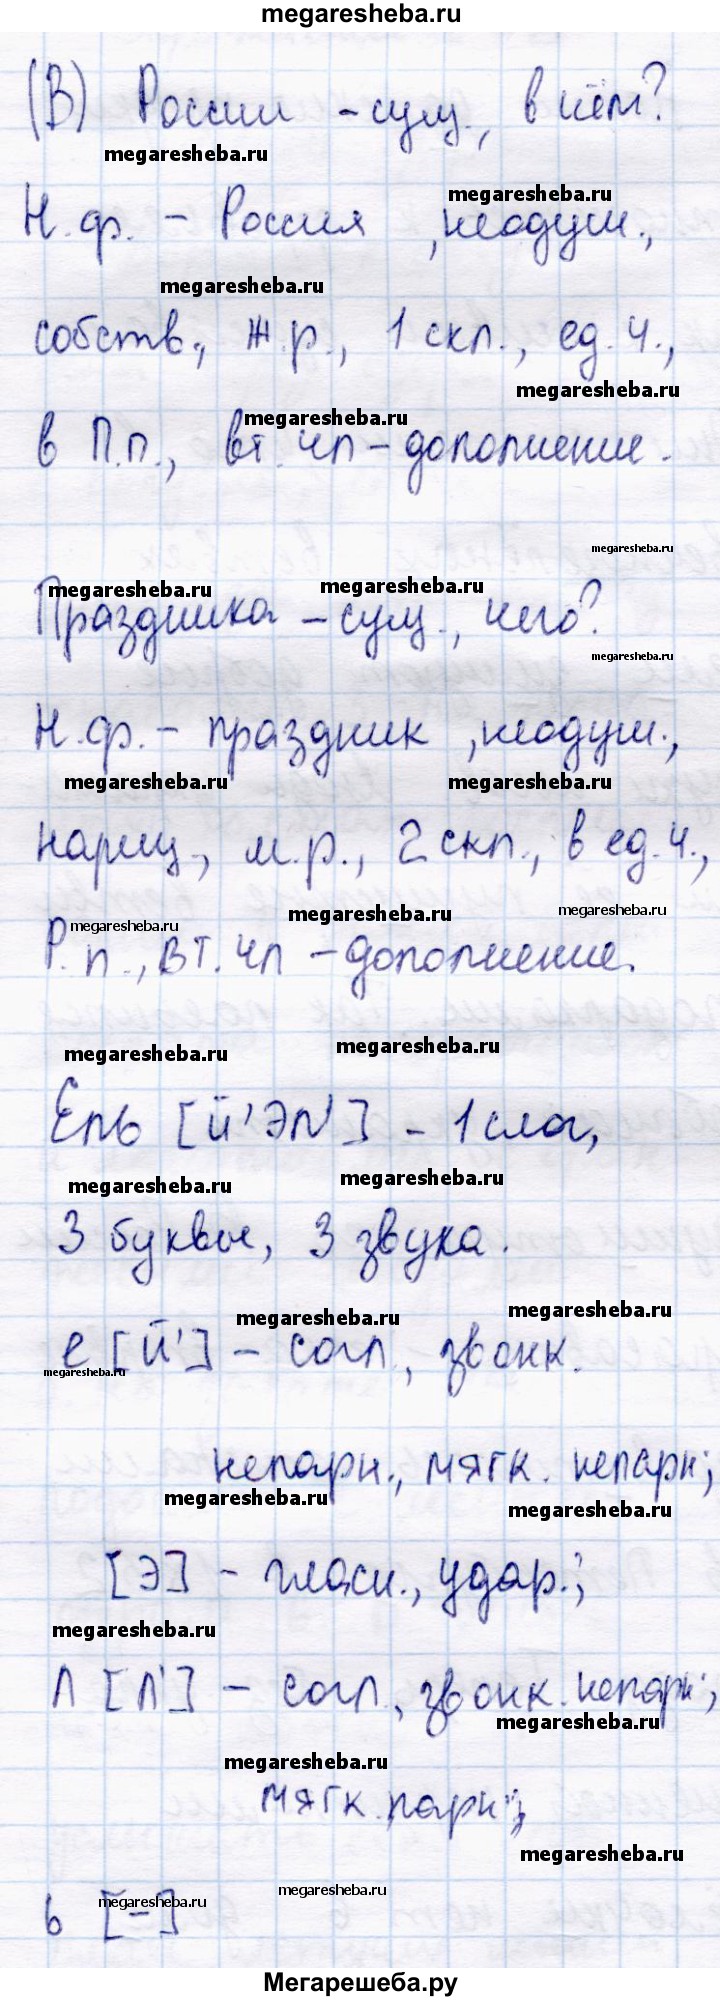 megaresheba.ru
(В) России - сущ., в чём?
megaresheba.ru
megaresheba.ru
Н.ф. - Россия, неодуш.,
megaresheba.ru
собств., ж.р., 1 скл., ед.ч.,
megaresheba.ru
megaresheba.ru
в П.п., вт.чл - дополнение.
megaresheba.ru
megaresheba.ru megaresheba.ru
Праздника - сущ., чего?
megaresheba.ru
Н.ф. - праздник, неодуш.,
megaresheba.ru megaresheba.ru
нариц., м.р., 2 скл., в ед.ч.,
megaresheba.ru megaresheba.ru
megaresheba.ru
Р.п., вт.чл - дополнение.
megaresheba.ru megaresheba.ru
Ель [й'эл'] - 1 слог,
megaresheba.ru megaresheba.ru
3 буквы, 3 звука.
megaresheba.ru megaresheba.ru
е [й'] - согл., звонк.
megaresheba.ru
непарн., мягк. непарн;
megaresheba.ru megaresheba.ru
[э] - гласн., удар.;
megaresheba.ru
л [л'] - согл., звонк. непарн;
megaresheba.ru
megaresheba.ru
мягк. парн;
megaresheba.ru
megaresheba.ru megaresheba.ru
ь [-]
Мегарешеба.ру